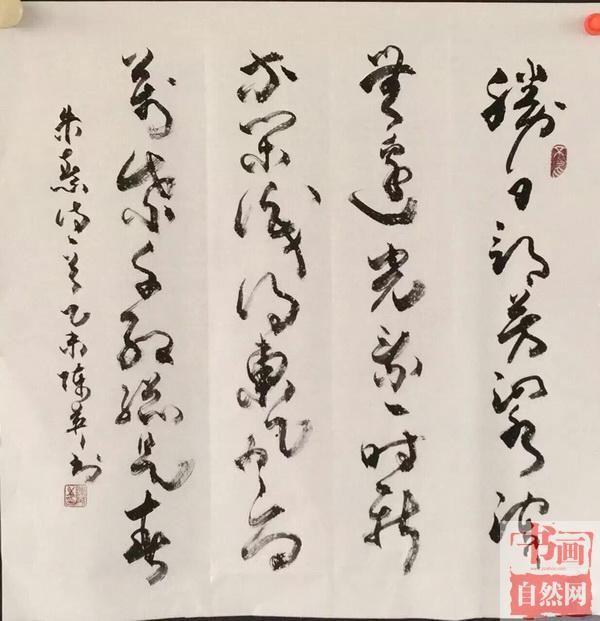 勝日尋芳泗水濱
無邊光景一時新
等閑識得東風面
萬紫千紅總是春
朱熹詩一首乙未陳英書
书画
自然网